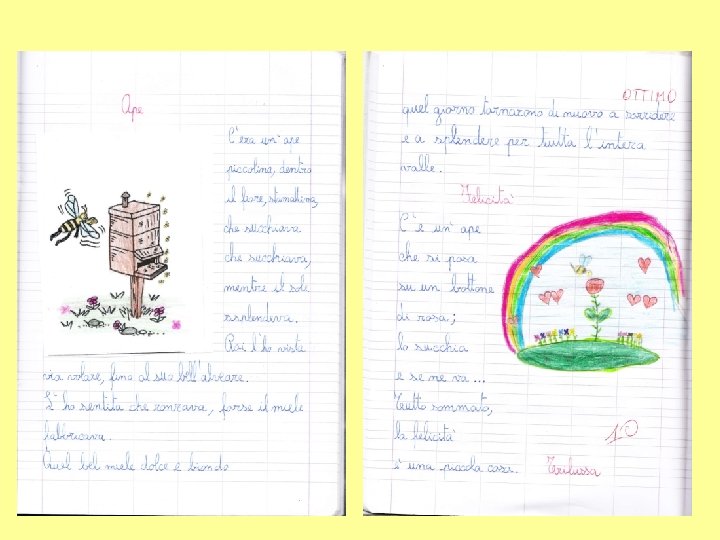 Ape
C'era un'ape
piccolina, dentro
il fiore, stamattina,
che succhiava
che succhiava,
mentre il sole
risplendeva.
Poi l'ho vista
via volare, fino al suo bell'alveare.
L'ho sentita che ronzava, forse il miele
fabbricava.
Quel bel miele dolce e biondo
OTTIMO
quel giorno tornarono di nuovo a sorridere
e a splendere per tutta l'intera
valle.
Felicità
C'è un'ape
che si posa
su un bottone
di rosa;
lo succhia
e se ne va...
Tutto sommato,
la felicità
è una piccola cosa. Trilussa
10